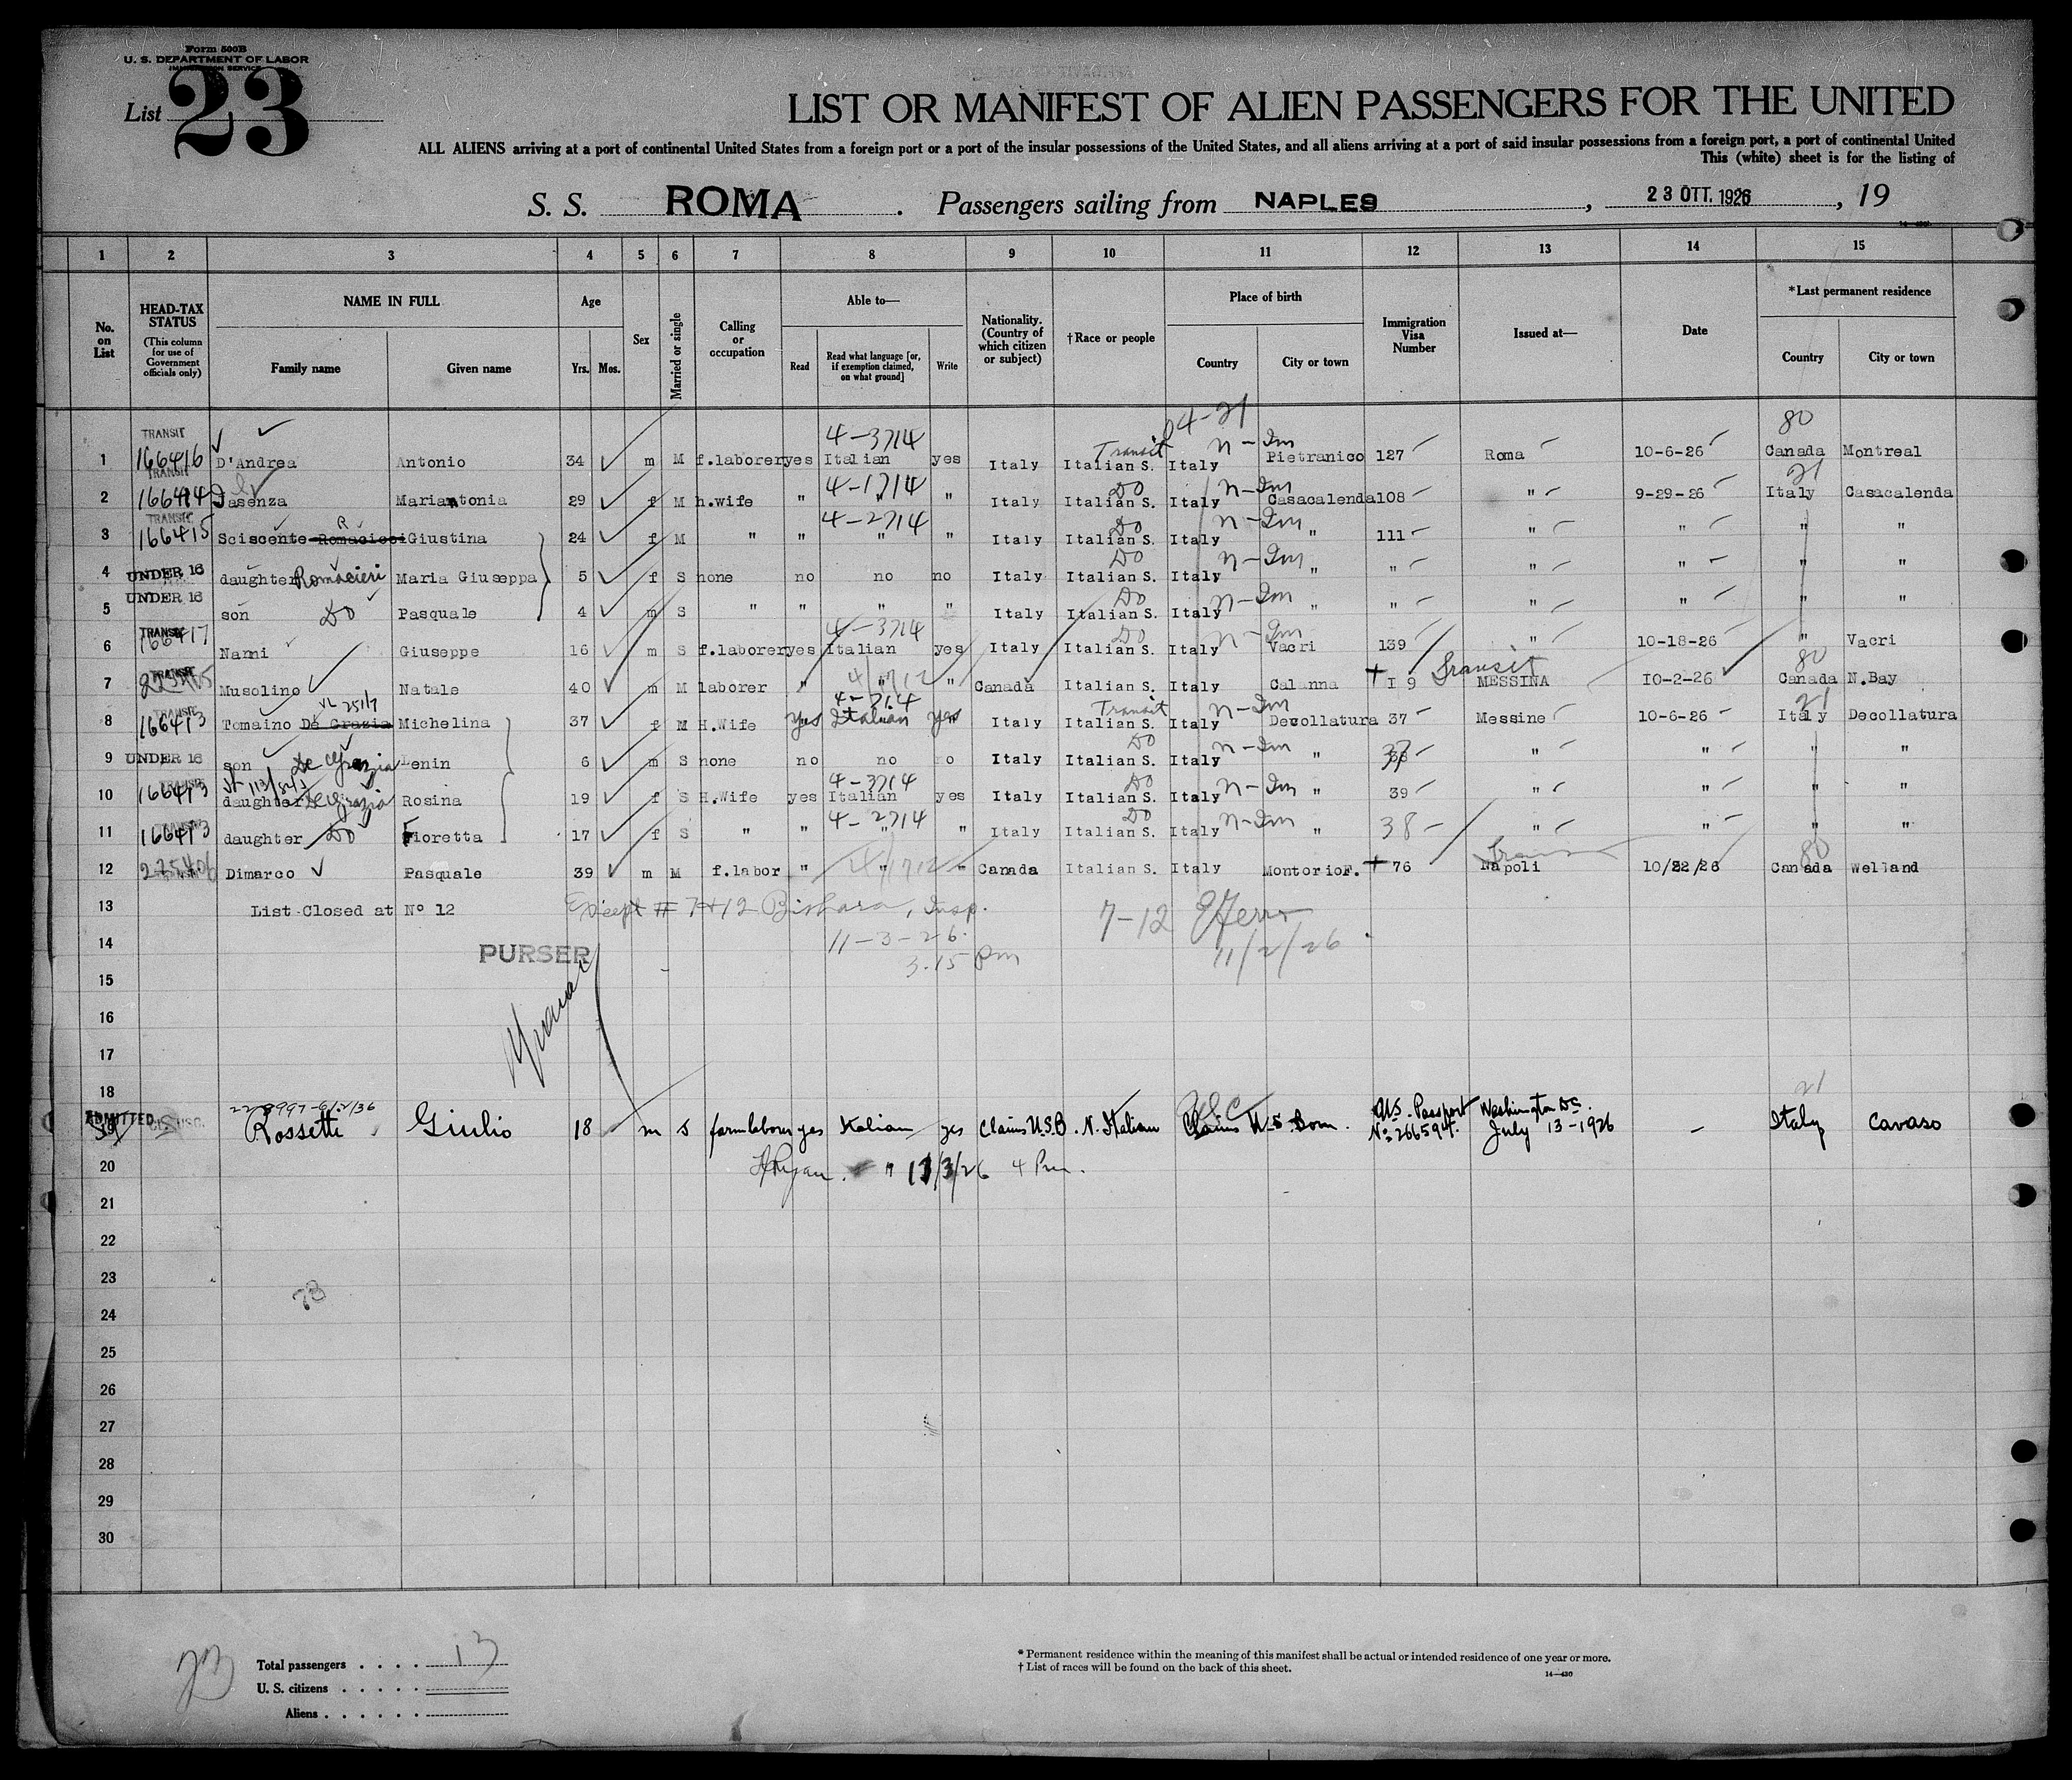 Form 500B
U. S. DEPARTMENT OF LABOR
IMMIGRATION SERVICE
List 23
LIST OR MANIFEST OF ALIEN PASSENGERS FOR THE UNITED
ALL ALIENS arriving at a port of continental United States from a foreign port or a port of the insular possessions of the United States, and all aliens arriving at a port of said insular possessions from a foreign port, a port of continental United
This (white) sheet is for the listing of
S. S. ROMA . Passengers sailing from NAPLES , 23 OTT. 1926 , 19
1 2 3 4 5 6 7 8 9 10 11 12 13 14 15
No. on List
HEAD-TAX STATUS
(This column for use of Government officials only)
NAME IN FULL
Family name Given name
Age
Yrs. Mos.
Sex
Married or single
Calling or occupation
Able to—
Read
Read what language [or, if exemption claimed, on what ground]
Write
Nationality. (Country of which citizen or subject)
†Race or people
Place of birth
Country City or town
Immigration Visa Number
Issued at—
Date
*Last permanent residence
Country City or town
04-21 80
TRANSIT 4-3714 Transit n-Im
1 166416 D'Andrea Antonio 34 m M f.laborer yes Italian yes Italy Italian S. Italy Pietranico 127 Roma 10-6-26 Canada Montreal
TRANSIT 4-1714 Do n-Im 21
2 166414 Dasenza Mariantonia 29 f M h.wife " " " Italy Italian S. Italy Casacalenda 108 " 9-29-26 Italy Casacalenda
TRANSIT R 4-2714 Do n-Im
3 166415 Sciscente Romacieri Giustina 24 f M " " " " Italy Italian S. Italy " 111 " " " "
Do n-Im
4 UNDER 16 daughter Romacieri Maria Giuseppa 5 f S none no no no Italy Italian S. Italy " " " " " "
Do n-Im
5 UNDER 16 son Do Pasquale 4 m S " " " " Italy Italian S. Italy " " " " " "
TRANSIT 4-3714 Do n-Im
6 166417 Nami Giuseppe 16 m S f.laborer yes Italian yes Italy Italian S. Italy Vacri 139 " 10-18-26 " Vacri
TRANSIT Transit 80
7 Musolino Natale 40 m M laborer " " " Canada Italian S. Italy Calanna + I 9 MESSINA IO-2-26 Canada N.Bay
TRANSIT 4-2714 Transit n-Im 21
8 166413 Tomaino De Grazia Michelina 37 f M H.Wife yes Italian yes Italy Italian S. Italy Decollatura 37 Messine 10-6-26 Italy Decollatura
Do n-Im
9 UNDER 16 son De Grazia Lenin 6 m S none no no no Italy Italian S. Italy " 37 " " " "
TRANSIT 4-3714 Do n-Im
10 166413 daughter De Grazia Rosina 19 f S H.Wife yes Italian yes Italy Italian S. Italy " 39 " " " "
TRANSIT 4-2714 Do n-Im
11 166413 daughter Do Fioretta 17 f S " " " " Italy Italian S. Italy " 38 " " " "
80
12 225406 Dimarco Pasquale 39 m M f.labor " " " Canada Italian S. Italy MontorioF. + 76 Napoli 10/22/26 Canada Welland
13 List Closed at Nº 12 Except # 7 + 12 Bishara, Insp. 7-12
14 PURSER 11-3-26. 11/2/26
15 3.15 pm
16
17
18 21
ADMITTED Rossetti Giulio 18 m S farm labour yes Italian yes Claims U.S.B. N. Italian Claims U.S. Born. U.S. Passport Nº 266594. Washington DC. July 13-1926 - Italy Cavaso
20 11/3/26 4 Pm.
21
22
23
24
25
26
27
28
29
30
Total passengers . . . . 13
U. S. citizens . . . . .
Aliens . . . . . .
* Permanent residence within the meaning of this manifest shall be actual or intended residence of one year or more.
† List of races will be found on the back of this sheet.
14—430